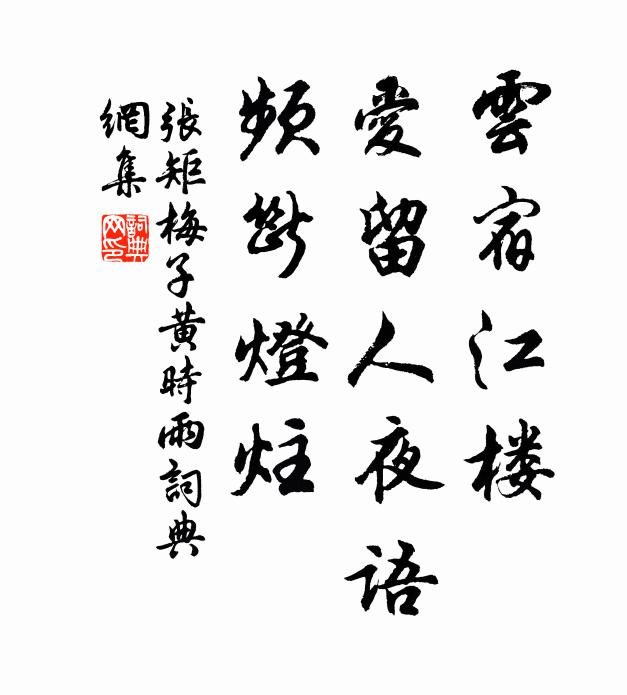 雲宿江楼
愛留人夜語
頻斷燈炷
張矩梅子黄時雨詞典
網集
詞典
网印